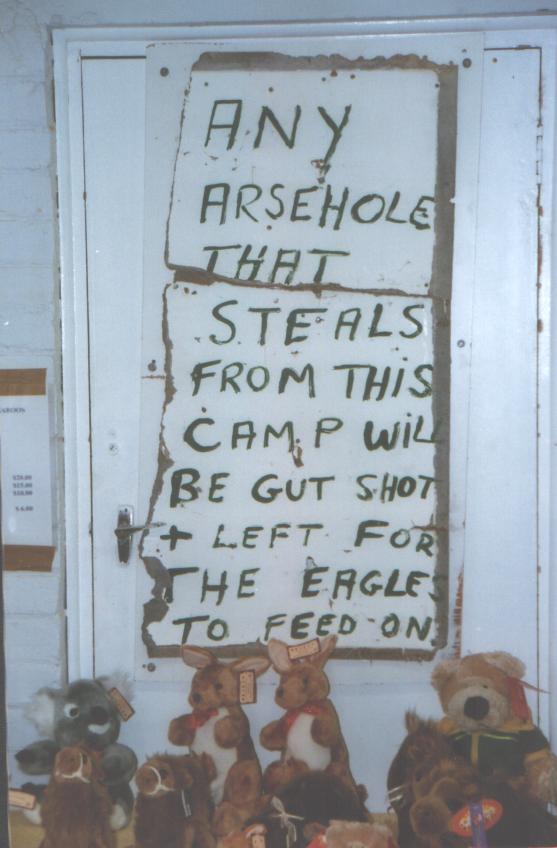 ANY
ARSEHOLE
THAT
STEALS
FROM THIS
CAMP WILL
BE GUT SHOT
+ LEFT FOR
THE EAGLES
TO FEED ON
$20.00
$15.00
$10.00
$ 6.00